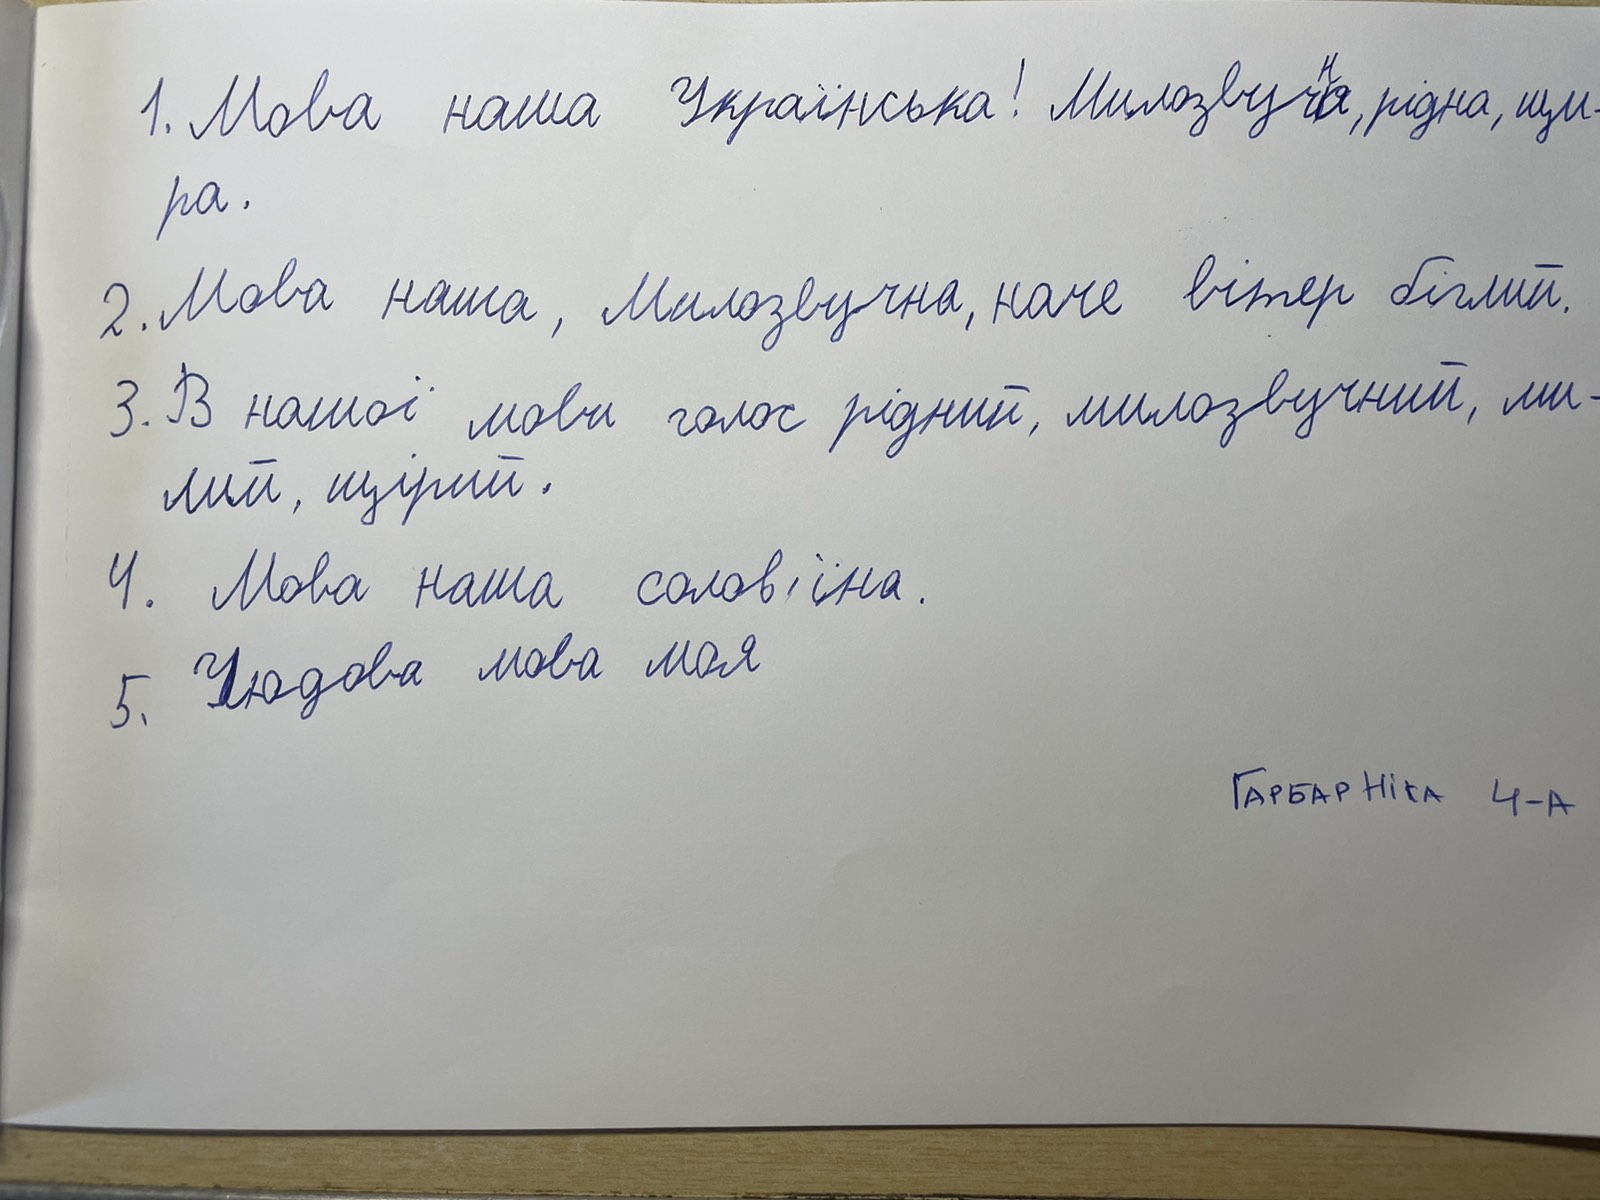 1. Мова наша Українська! Милозвучна, рідна, щи-
ра.
2. Мова наша, Милозвучна, наче вітер біглий.
3. В нашої мови голос рідний, милозвучний, ми-
лий, щірий.
4. Мова наша солов'їна.
5. Чюдова мова моя
Гарбар Ніка 4-А